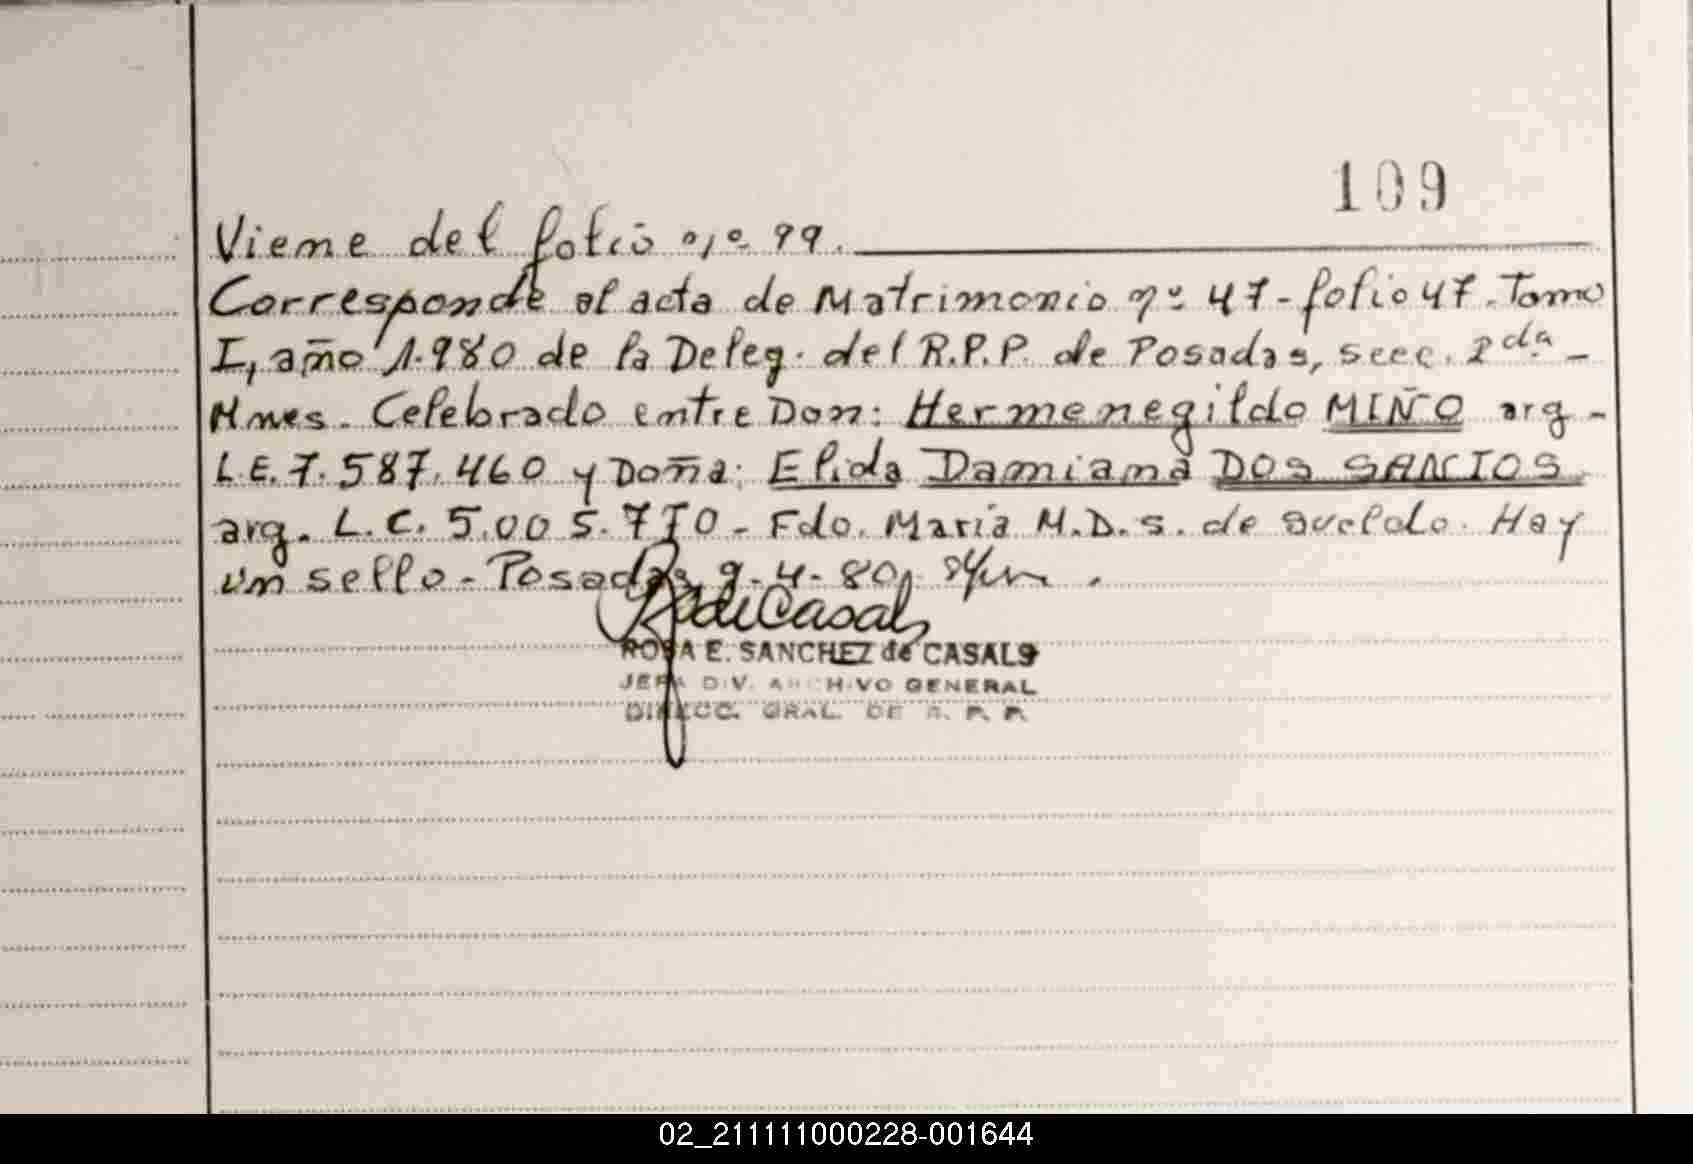 109
Viene del folio nº 99.
Corresponde al acta de Matrimonio nº 47-folio 47. Tomo
I, año 1.980 de la Deleg. del R.P.P. de Posadas, secc. 2da-
Mnes. Celebrado entre Don: Hermenegildo MIÑO arg-
L.E. 7.587.460 y Doña: Elida Damiana DOS SANTOS
arg. L.C. 5.005.770- Fdo. Maria M.D.S. de Sueldo. Hay
un sello- Posadas 9-4-80,
R de Casals
ROSA E. SANCHEZ de CASALS
JEFA DIV. ARCHIVO GENERAL
DIRECC. GRAL. DE R. P. P.
02_211111000228-001644